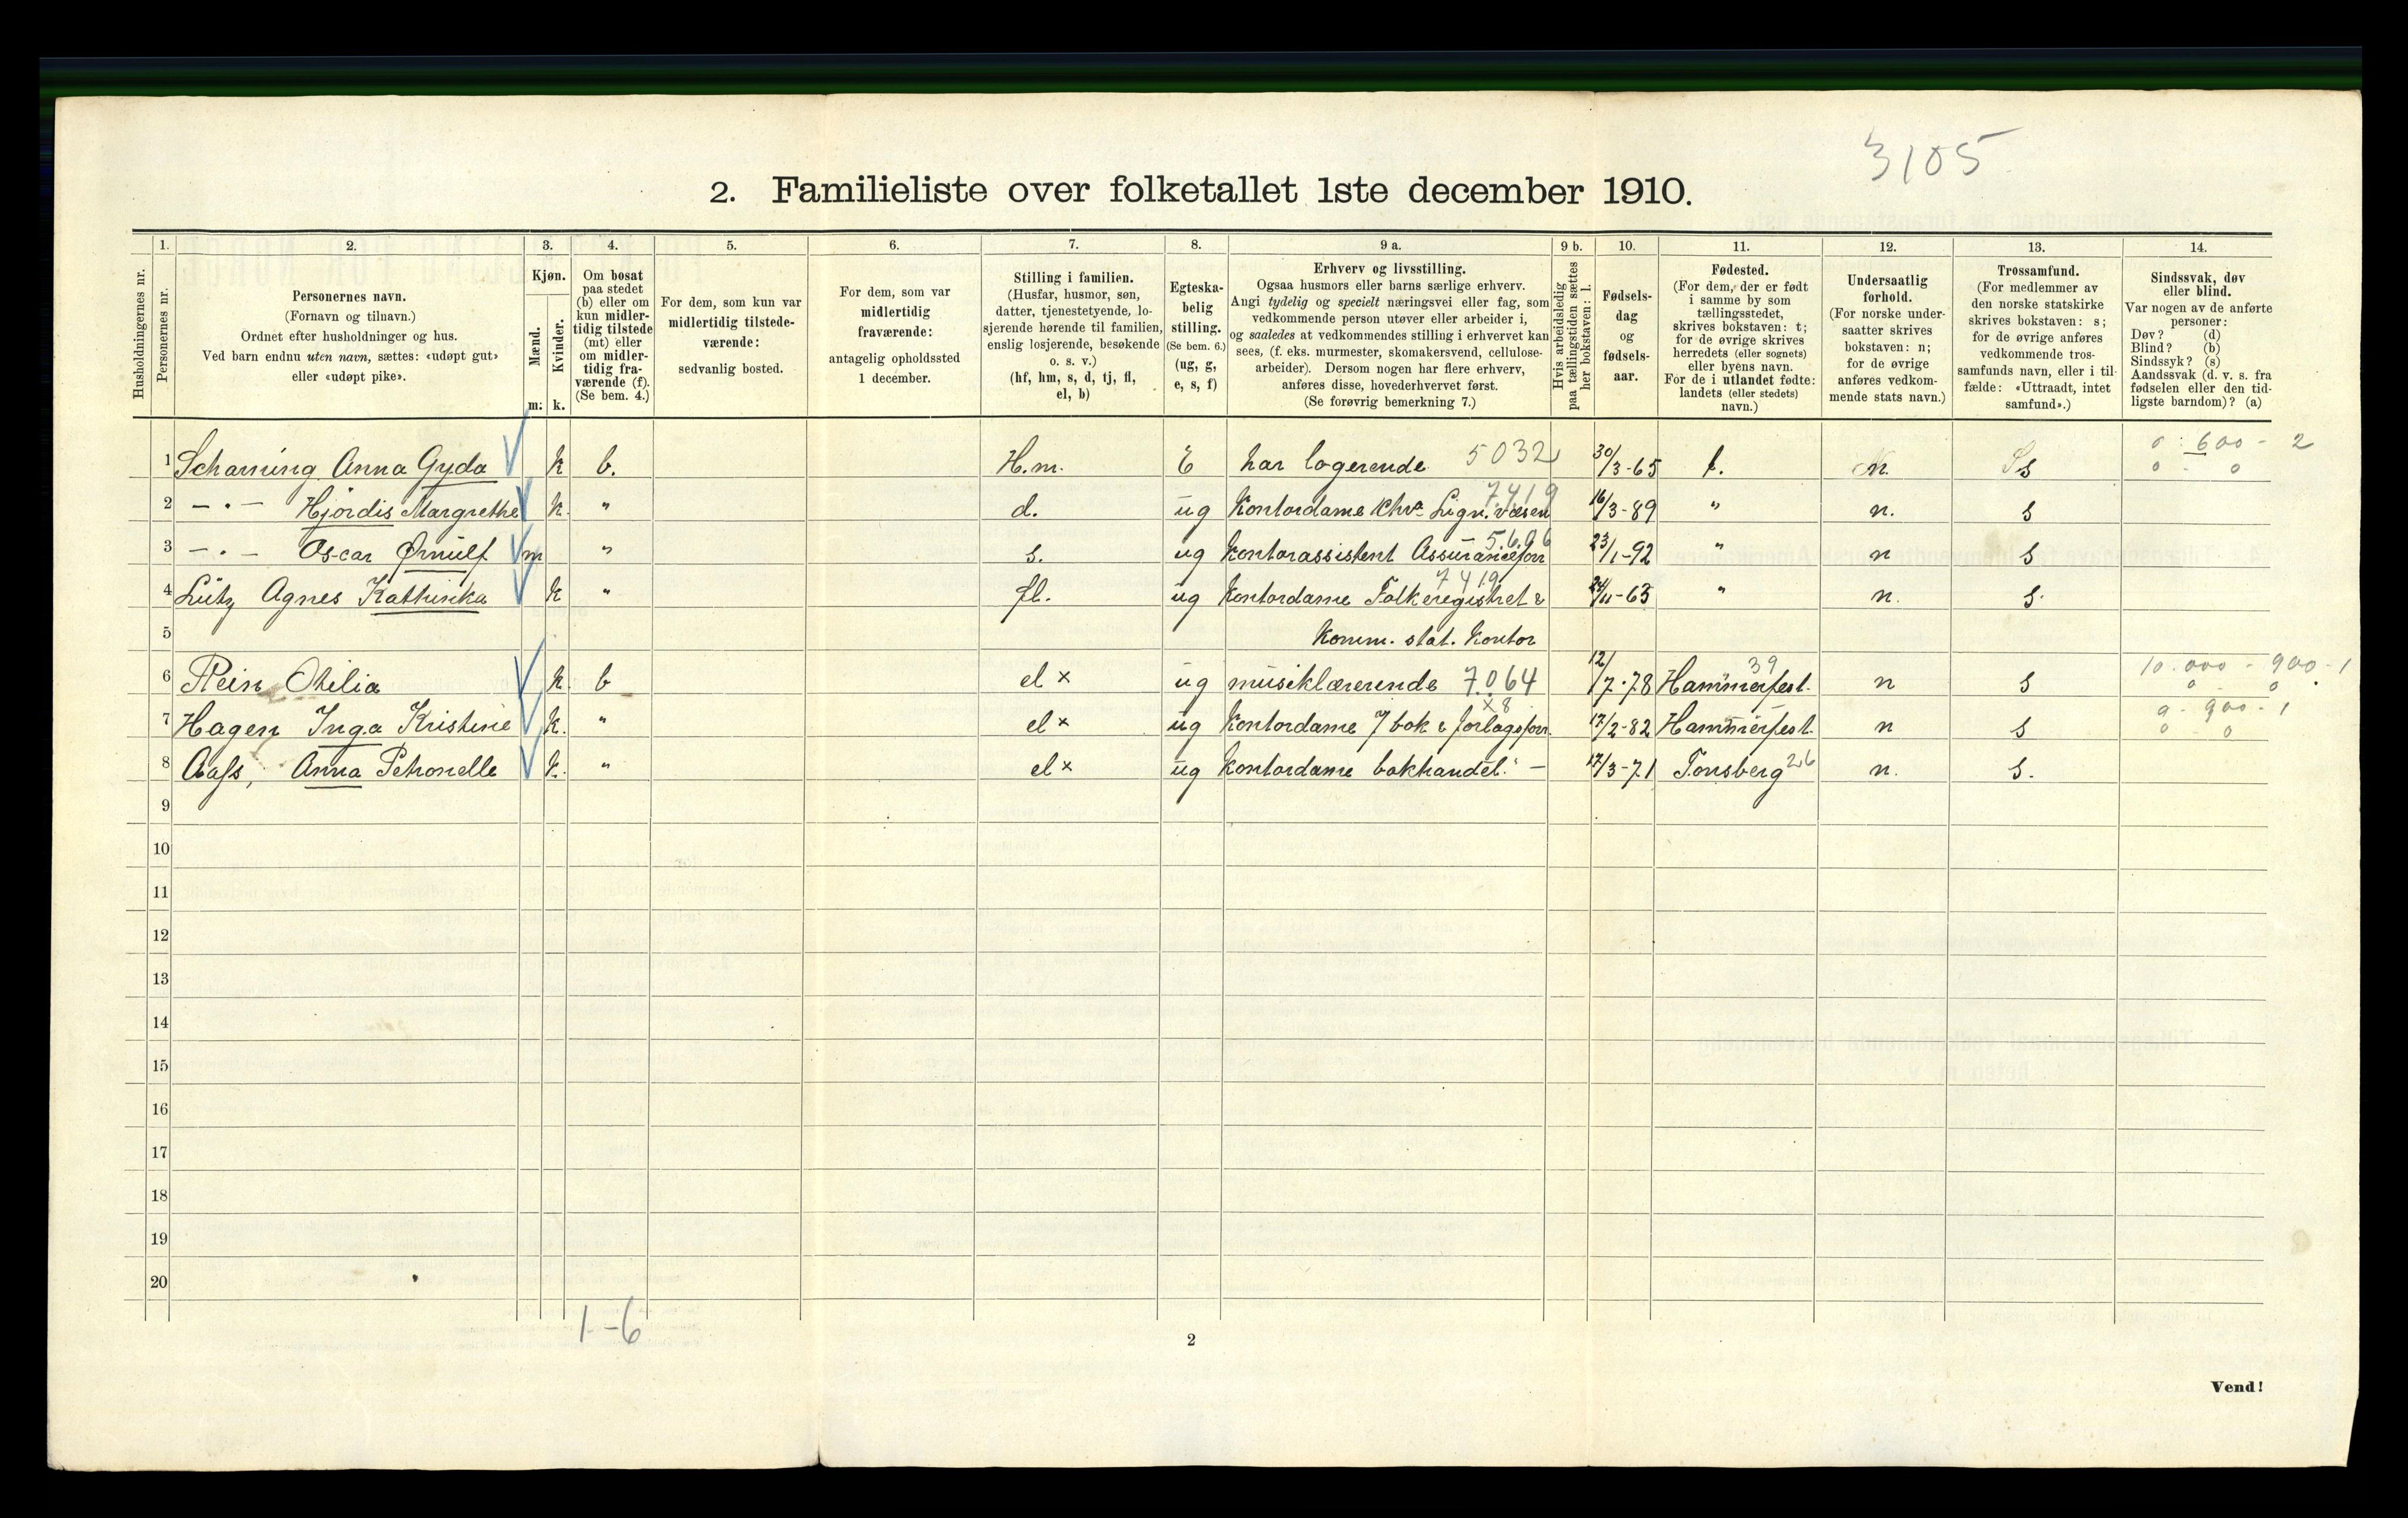 3105
2. Familieliste over folketallet 1ste december 1910.
Husholdningernes nr.
1. Personernes nr.
2. Personernes navn.
(Fornavn og tilnavn.)
Ordnet efter husholdninger og hus.
Ved barn endnu uten navn, sættes: «udøpt gut»
eller «udøpt pike».
3. Kjøn.
Mænd. m.
Kvinder. k.
4. Om bosat
paa stedet
(b) eller om
kun midler-
tidig tilstede
(mt) eller
om midler-
tidig fra-
værende (f).
(Se bem. 4.)
5. For dem, som kun var
midlertidig tilstede-
værende:
sedvanlig bosted.
6. For dem, som var
midlertidig
fraværende:
antagelig opholdssted
1 december.
7. Stilling i familien.
(Husfar, husmor, søn,
datter, tjenestetyende, lo-
sjerende hørende til familien,
enslig losjerende, besøkende
o. s. v.)
(hf, hm, s, d, tj, fl,
el, b)
8. Egteska-
belig
stilling.
(Se bem. 6.)
(ug, g,
e, s, f)
9 a. Erhverv og livsstilling.
Ogsaa husmors eller barns særlige erhverv.
Angi tydelig og specielt næringsvei eller fag, som
vedkommende person utøver eller arbeider i,
og saaledes at vedkommendes stilling i erhvervet kan
sees, (f. eks. murmester, skomakersvend, cellulose-
arbeider). Dersom nogen har flere erhverv,
anføres disse, hovederhvervet først.
(Se forøvrig bemerkning 7.)
9 b. Hvis arbeidsledig
paa tællingstiden sættes
her bokstaven: l.
10. Fødsels-
dag
og
fødsels-
aar.
11. Fødested.
(For dem, der er født
i samme by som
tællingsstedet,
skrives bokstaven: t;
for de øvrige skrives
herredets (eller sognets)
eller byens navn.
For de i utlandet fødte:
landets (eller stedets)
navn.)
12. Undersaatlig
forhold.
(For norske under-
saatter skrives
bokstaven: n;
for de øvrige
anføres vedkom-
mende stats navn.)
13. Trossamfund.
(For medlemmer av
den norske statskirke
skrives bokstaven: s;
for de øvrige anføres
vedkommende tros-
samfunds navn, eller i til-
fælde: «Uttraadt, intet
samfund».)
14. Sindssvak, døv
eller blind.
Var nogen av de anførte
personer:
Døv? (d)
Blind? (b)
Sindssyk? (s)
Aandssvak (d. v. s. fra
fødselen eller den tid-
ligste barndom)? (a)
1 Scharning Anna Gyda k b. H.m. E har logerende 5032 30/3-65 t. N. s 0 : 600 - 2
0 - 0
2 - " - Hjördis Margrethe k. " d. ug Kontordame Chra Lign.væsen 7419 16/3-89 " n. s
3 - " - Oscar Ørnulf m " s. ug Kontorassistent Assuranceforr 5606 23/1-92 " n s
4 Lütz Agnes Kathinka k " fl. ug Kontordame Folkeregistret & 7419 24/11-63 " n. s.
5 Komm. stat. Kontor
6 Rein Othilia k. b el × ug musiklærerende 7064 12/7-78 Hammerfest. 39 n s 10.000 - 900 - 1
0 - 0
7 Hagen Inga Kristine k. " el × ug Kontordame i bok & forlagsforr. x8 17/2-82 Hammerfest. n s 0 - 900 - 1
0 - 0
8 Aass, Anna Petronelle k. " el × ug kontordame bokhandel. " - 17/3-71 Tonsberg 26 n. s.
9
10
11
12
13
14
15
16
17
18
19
20
1-6
2
Vend!